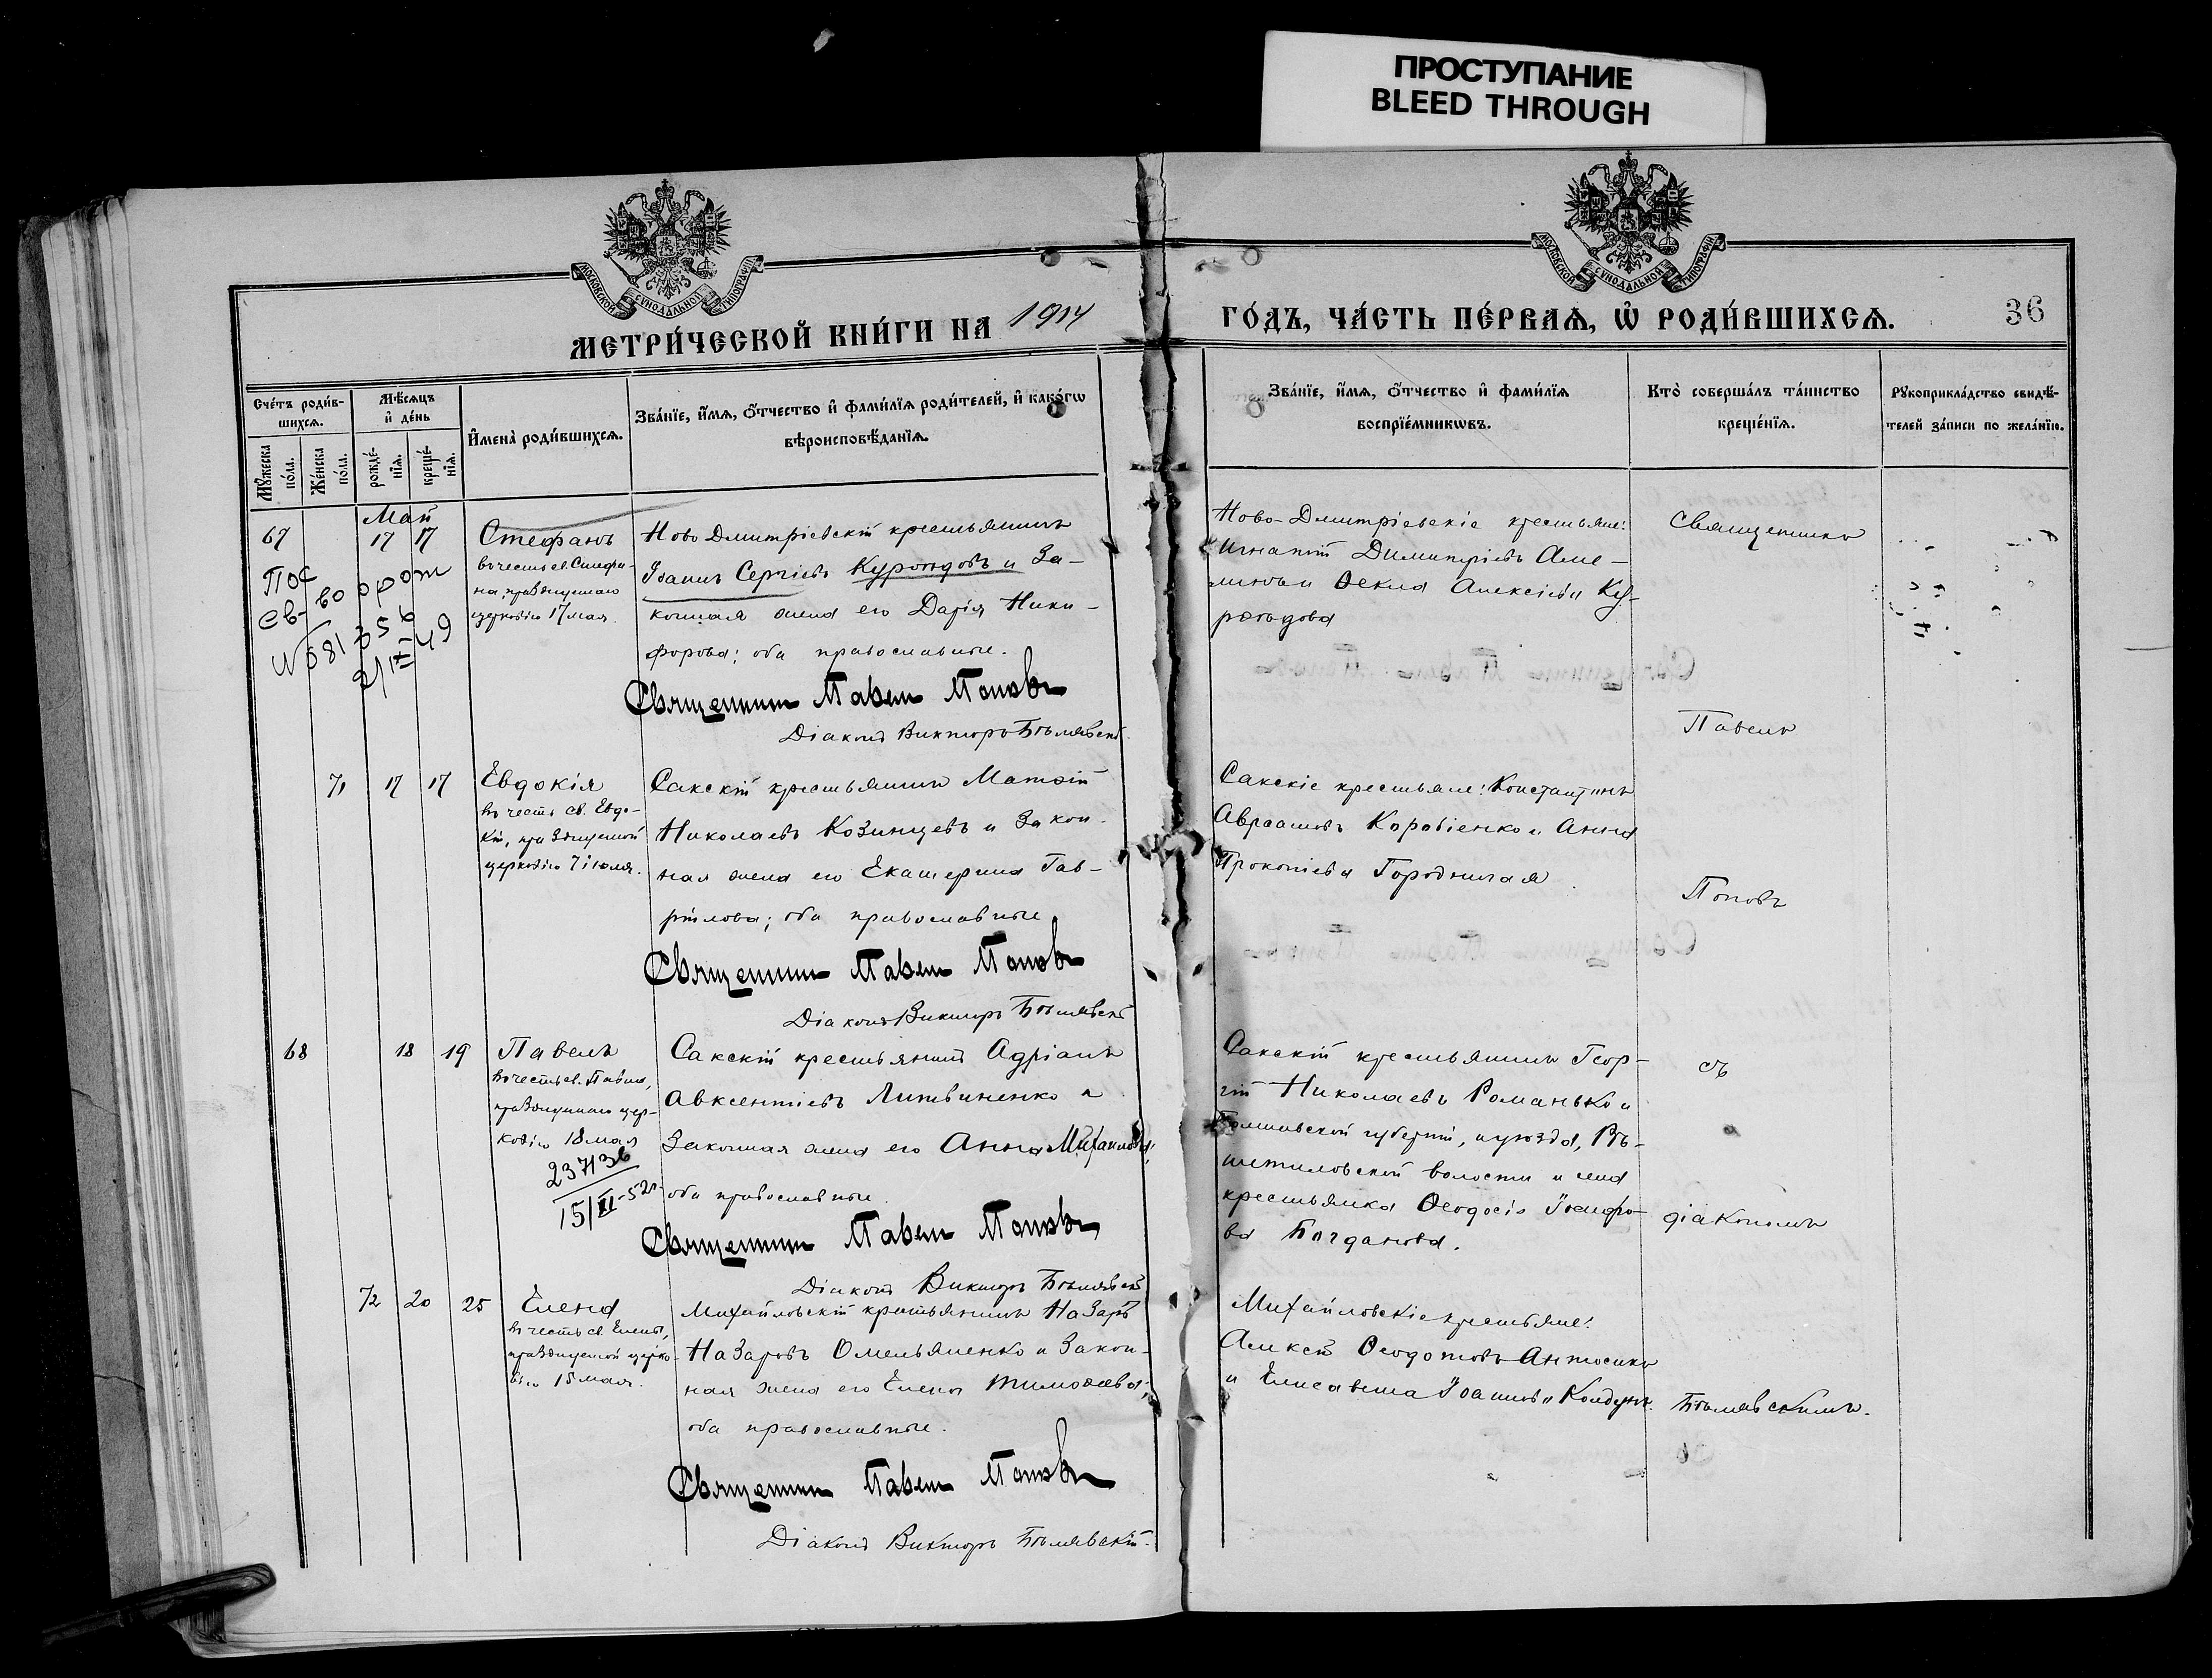 ПРОСТУПАНИЕ
BLEED THROUGH
МОСКОВСКОЙ СУНОДАЛЬНОЙ ТИПОГРАФІИ
МОСКОВСКОЙ СУНОДАЛЬНОЙ ТИПОГРАФІИ
МЕТРИ́ЧЕСКОЙ КНИ́ГИ НА 1914
ГО́ДЪ, ЧА́СТЬ ПЕ́РВАѦ, Ѡ҆ РОДИ́ВШИХСѦ.
36
Сче́тъ роди́в-
шихсѧ.
Мѣ́сѧцъ
и҆ де́нь
Мꙋ́жеска по́ла.
Же́нска по́ла.
рожде́-нїѧ.
креще́-нїѧ.
И҆мена̀ роди́вшихсѧ.
Зва́нїе, и҆́мѧ, ѻ҆́тчество и҆ фами́лїѧ роди́телей, и҆ како́гѡ
вѣроисповѣ́данїѧ.
Зва́нїе, и҆́мѧ, ѻ҆́тчество и҆ фами́лїѧ
воспрїе́мникѡвъ.
Кто̀ соверша́лъ та́инство
креще́нїѧ.
Рꙋкоприкла́дство свидѣ́-
телей за́писи по жела́нїю.
Май
67 17 17
Стефанъ
въ честь св. Стефа-
на, празднуемаго
церковію 17 мая.
Ново Дмитріевскій крестьянинъ
Іоаннъ Сергіевъ Курѣндовъ и за-
конная жена его Дарія Ники-
форова; оба православные.
Священникъ Павелъ Поповъ
Діаконъ Викторъ Бѣлявскій.
Ново-Дмитріевскіе крестьяне:
Игнатій Димитріевъ Аме-
линъ и Ѳекла Алексіева Ку-
рѣндова
Священникъ
Павелъ
71 17 17
Евдокія
въ честь св. Евдо-
кіи, празднуемой
церковію 7 іюля.
Сакскій крестьянинъ Матѳій
Николаевъ Козинцевъ и закон-
ная жена его Екатерина Гав-
ріилова; оба православные
Священникъ Павелъ Поповъ
Діаконъ Викторъ Бѣлявскій
Сакскіе крестьяне: Константинъ
Авраамовъ Коровіенко и Анна
Прокопіева Городничая.
Поповъ
68 18 19
Павелъ
въ честь св. Павла,
празднуемаго цер-
ковію 18 мая
15/XI-52г.
Сакскій крестьянинъ Адріанъ
Авксентіевъ Литвиненко и
законная жена его Анна Михаилова;
оба православные.
Священникъ Павелъ Поповъ
Діаконъ Викторъ Бѣлявскій
Сакскій крестьянинъ Геор-
гій Николаевъ Романько и
Полтавской губерніи, и уѣзда, Рѣ-
шетиловской волости и села
крестьянка Ѳеодосія Іосифо-
ва Богданова.
съ
діакономъ
72 20 25
Елена
въ честь св. Елены,
празднуемой церко-
вію мая.
Михайловскій крестьянинъ Назаръ
Назаровъ Омельяненко и закон-
ная жена его Елена Тимоѳеева;
оба православные.
Священникъ Павелъ Поповъ
Діаконъ Викторъ Бѣлявскій.
Михайловскіе крестьяне:
Алексій Ѳеодотовъ
и Елисавета Іоаннова
Бѣлявскимъ.